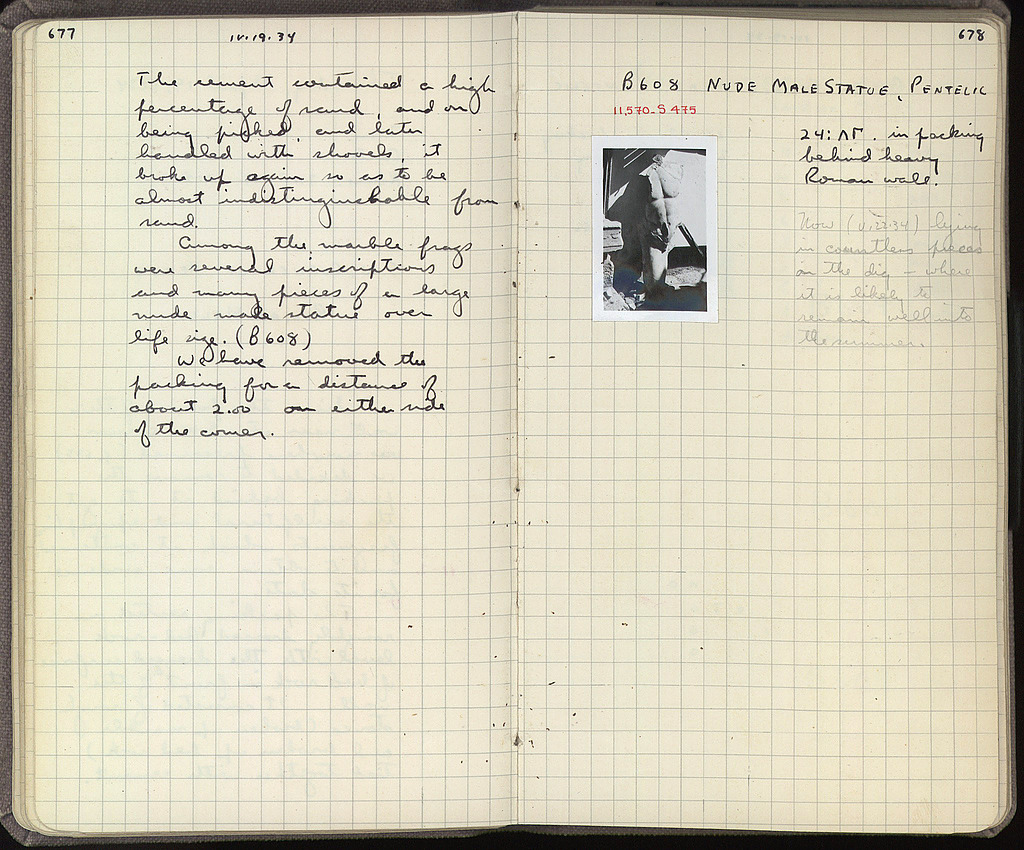 677
IV.19.34
The cement contained a high
percentage of sand, and on
being picked, and later
handled with shovels, it
broke up again so as to be
almost indistinguishable from
sand.
Among the marble frags
were several inscriptions
and many pieces of a large
nude male statue over
life size. (B608)
We have removed the
packing for a distance of
about 2.00 on either side
of the corner.
678
B608 NUDE MALE STATUE, PENTELIC
11,570-S 475
24:ΛΓ. in packing
behind heavy
Roman wall.
Now (V.22.34) lying
in countless pieces
on the dig – where
it is likely to
remain well into
the summer.